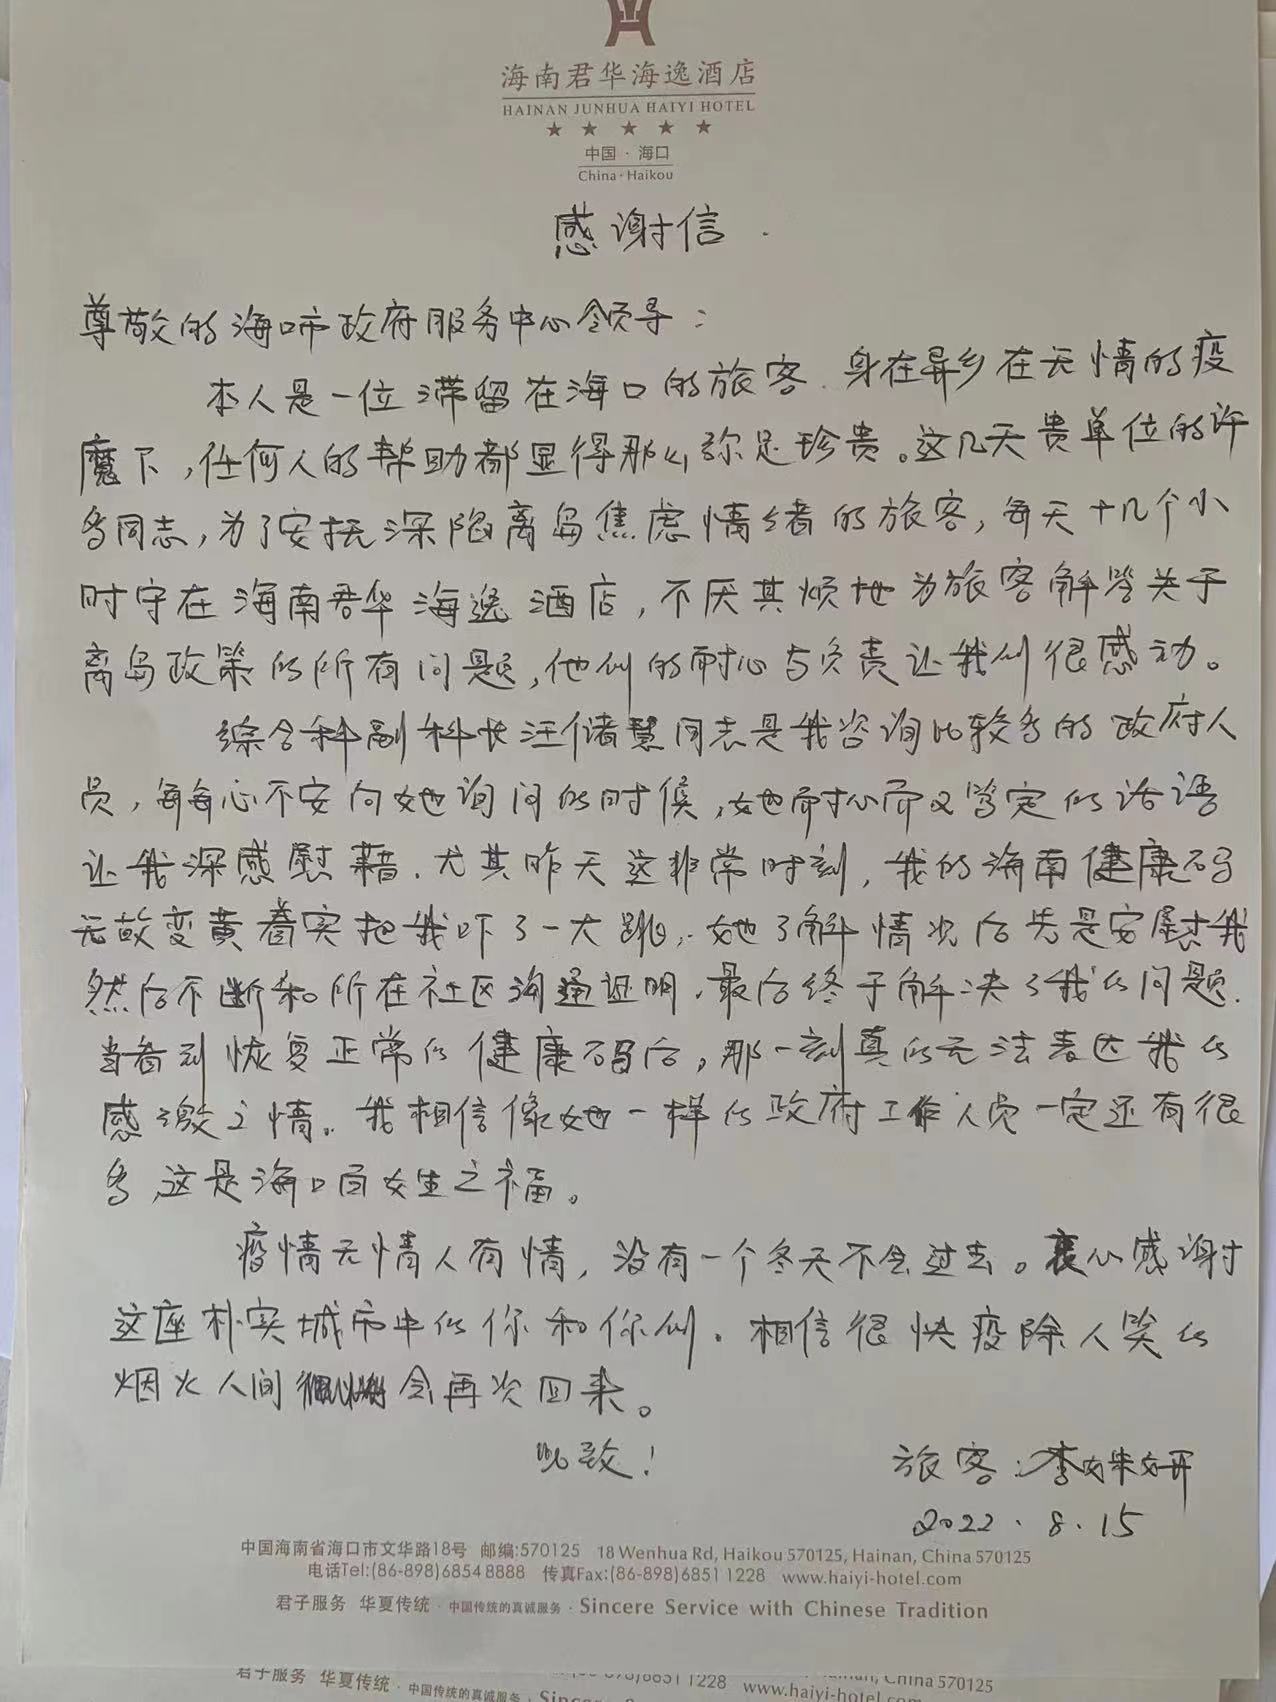 海南君华海逸酒店
HAINAN JUNHUA HAIYI HOTEL
★ ★ ★ ★ ★
中国·海口
China·Haikou
感谢信.
尊敬的海口市政府服务中心领导:
本人是一位滞留在海口的旅客.身在异乡在无情的疫
魔下,任何人的帮助都显得那么弥足珍贵。这几天贵单位的许
多同志,为了安抚深陷离岛焦虑情绪的旅客,每天十几个小
时守在海南君华海逸酒店,不厌其烦地为旅客解答关于
离岛政策的所有问题,他们的耐心与负责让我们很感动。
综合科副科长汪储慧同志是我咨询比较多的政府人
员,每每心不安向她询问的时候,她耐心而又笃定的话语
让我深感慰藉.尤其昨天这非常时刻,我的海南健康码
无故变黄着实把我吓了一大跳,她了解情况后先是安慰我
然后不断和所在社区沟通证明.最后终于解决了我的问题.
当看到恢复正常的健康码后,那一刻真的无法表达我的
感激之情。我相信像她一样的政府工作人员一定还有很
多,这是海口百姓之福。
疫情无情人有情,没有一个冬天不会过去。衷心感谢
这座朴实城市中的你和你们.相信很快疫除人笑的
烟火人间会再次回来。
此致!
旅客:李姝妍
2022.8.15
中国海南省海口市文华路18号 邮编:570125 18 Wenhua Rd, Haikou 570125, Hainan, China 570125
电话Tel:(86-898)6854 8888 传真Fax:(86-898)6851 1228 www.haiyi-hotel.com
君子服务 华夏传统·中国传统的真诚服务·Sincere Service with Chinese Tradition
君子服务 华夏传统·中国传统的真诚服务·Sinc
898)6851 1228 www.haiyi-hotel.com
China 570125